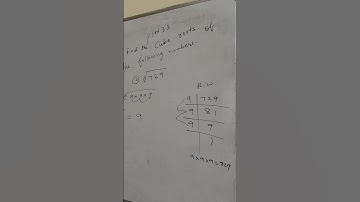 Find the Cube roots of
the following numbers.
∛729
R.W
9 | 729
9 | 81
9 | 9
1
= 9
9×9×9=729